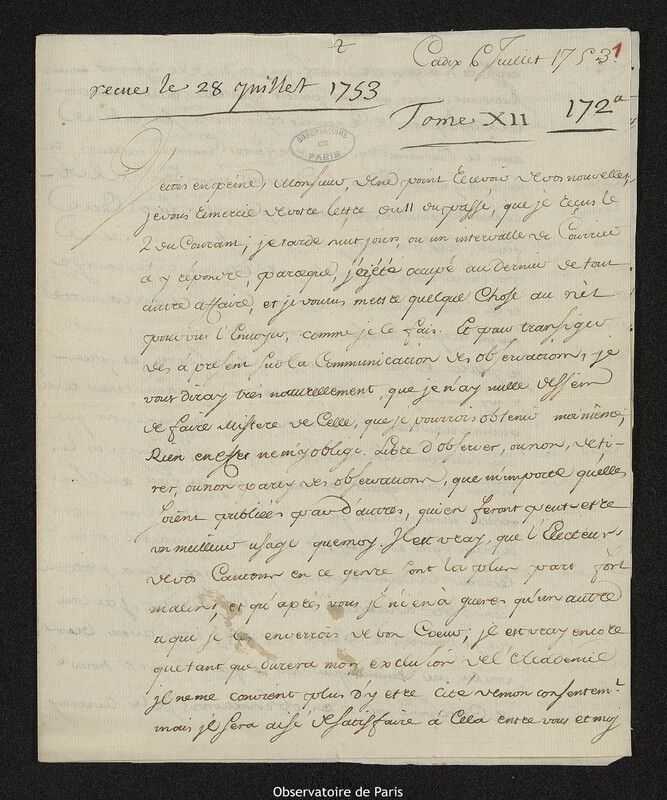 2
Cadix 6 Juillet 1753
1
recue le 28 juillet 1753
Tome XII
172a
OBSERVATOIRE
DE
PARIS
J'etois en peine, Monsieur, de ne point recevoir de vos nouvelles,
je vous remercie de votre lettre du 11 du passé, que je reçus le
2 du Courant; je tarde huit jours, ou un intervalle de Courrier
à y répondre, parceque, j'ay été occupé au dernier de tout
autre affaire, et je voulus mettre quelque Chose au nèt
pour vous l'Envoyer, comme je le fais. Et pour transiger
dès à present sur la Communication des observations, je
vous diray très naturellement, que je n'ay nulle dessein
de faire Mistere de Celle, que je pourrois obtenir moi même;
Rien en effet ne m'y oblige. Libre d'observer, ou non, de ti-
rer, ou non party des observations, que m'importe qu'elles
soïent publiées par d'autres, qui en feront peut-etre
un meilleur usage que moy. Il est vray, que l'Electeurs
de vos Cantons en ce genre sont la plus part fort
malins, et qu'aprés vous je n'en à gueres qu'un autre
a qui je les enverrois de bon Coeur, jl est vray encore
que tant que durera mon exclusion de l'Academie
jl ne me convient plus d'y etre Cité de mon consentemt.
mais jl sera aisé de satisfaire à Cela entre vous et moy
Observatoire de Paris